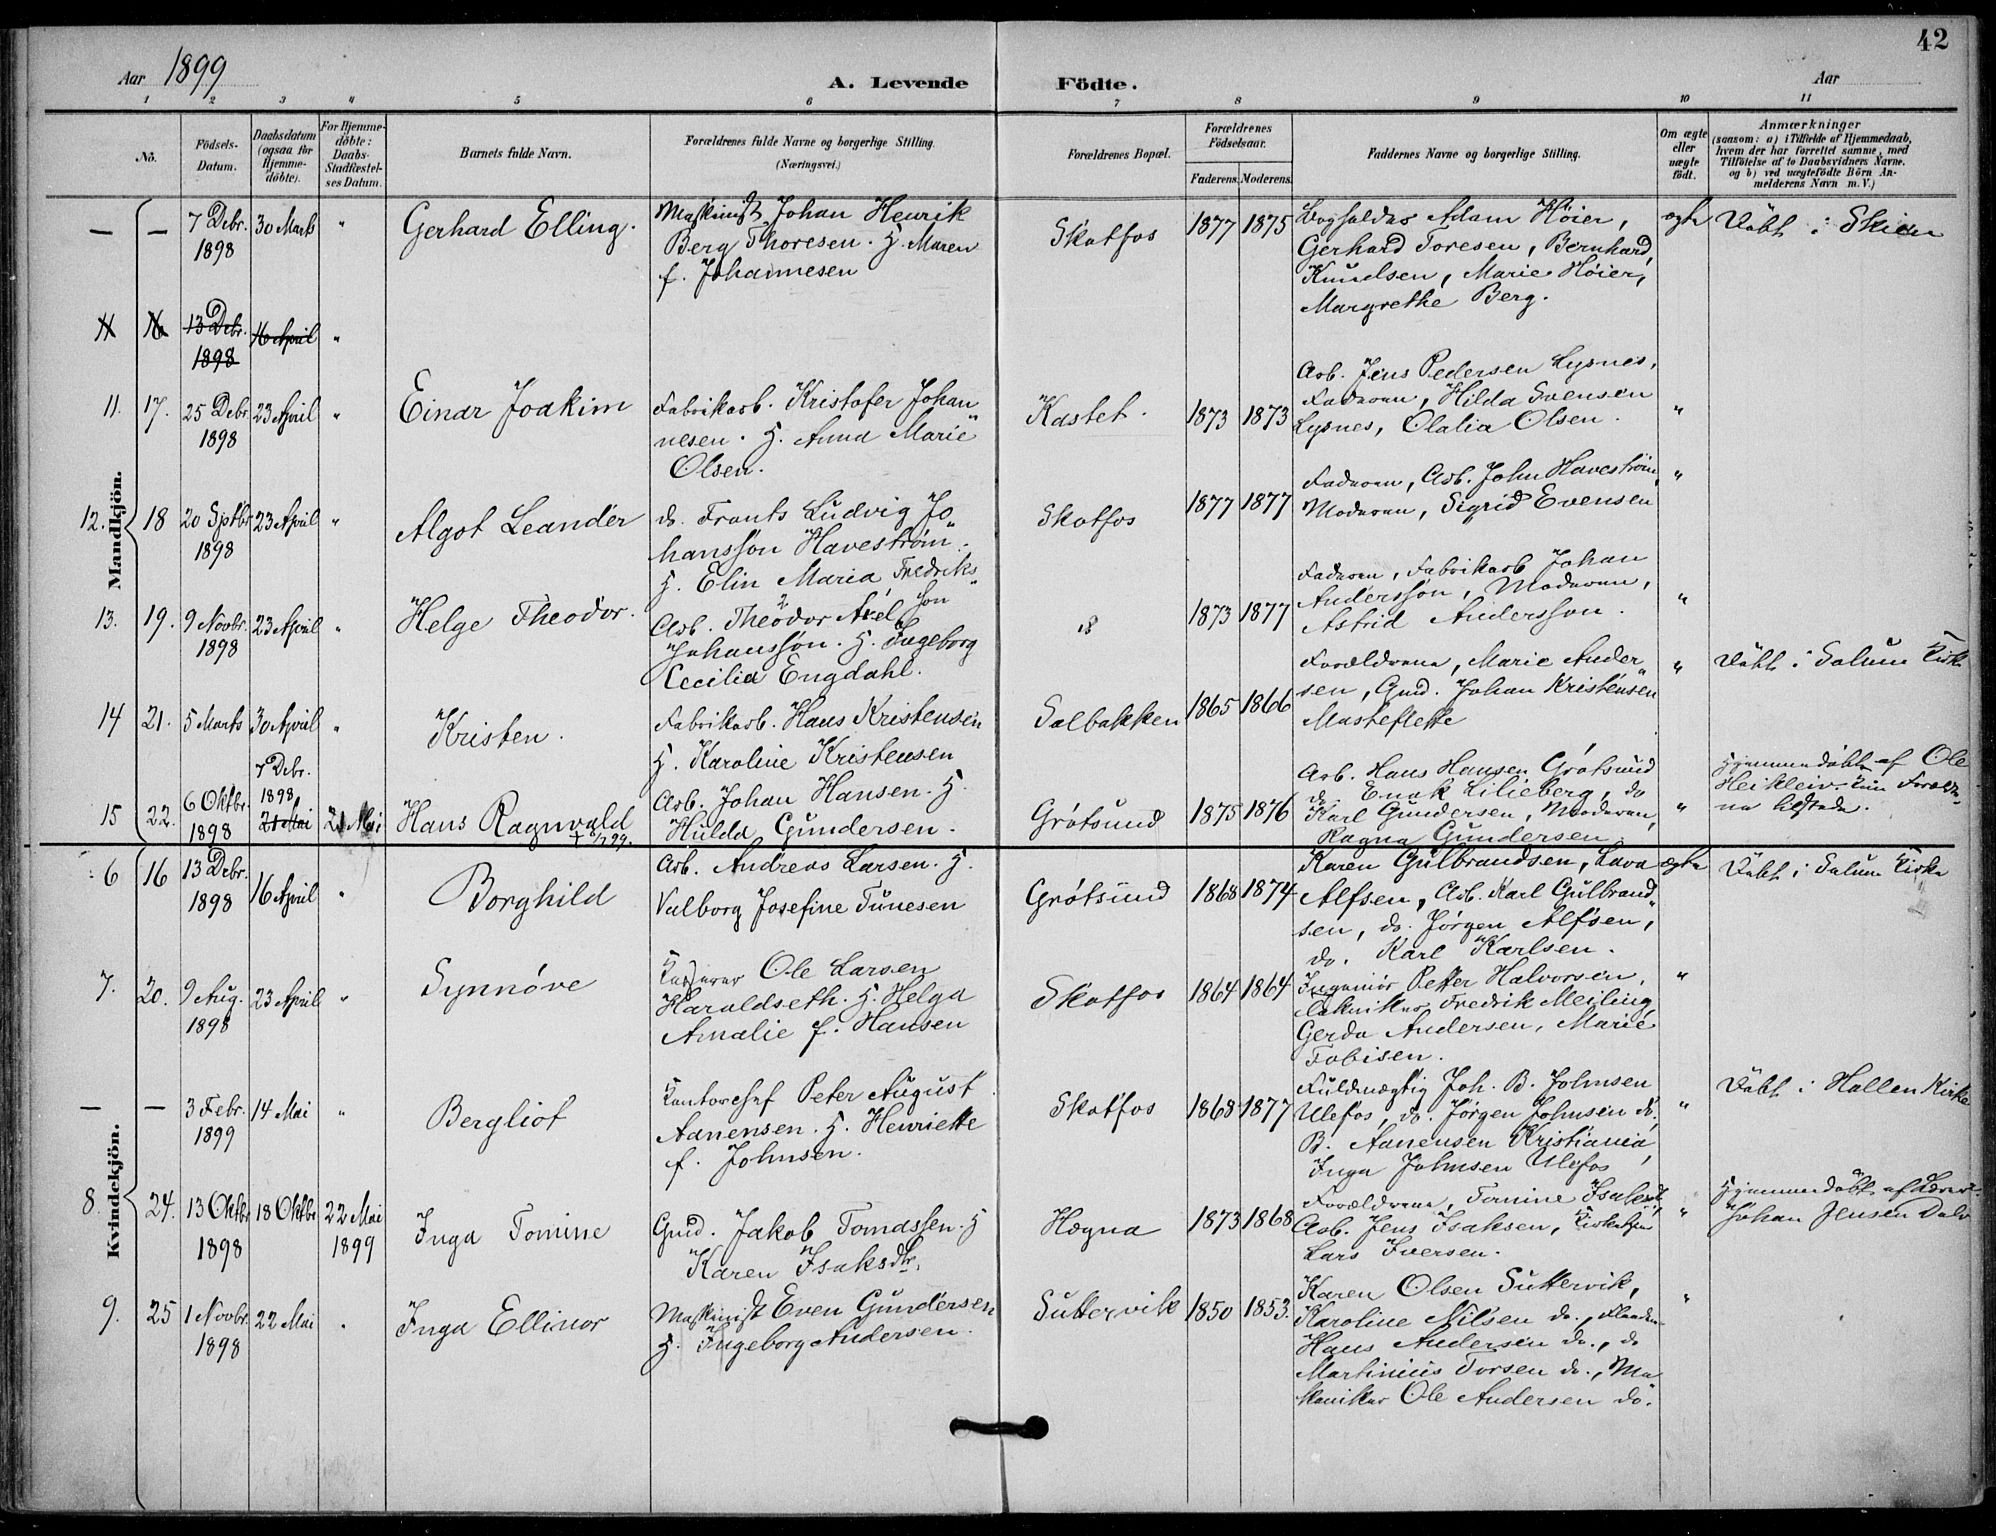 42
Aar 1899
A. Levende Födte.
Aar
1 2 3 4 5 6 7 8 9 10 11
No.
Födsels-
Datum.
Daabsdatum
(ogsaa for
Hjemme-
döbte).
For Hjemme-
döbte:
Daabs-
Stadfæstel-
ses Datum.
Barnets fulde Navn.
Forældrenes fulde Navne og borgerlige Stilling.
(Næringsvei.)
Forældrenes Bopæl.
Forældrenes
Födselsaar.
Faderens. Moderens.
Faddernes Navne og borgerlige Stilling.
Om ægte
eller
uægte
födt.
Anmærkninger
(saasom: a) i Tilfælde af Hjemmedaab,
hvem der har forrettet samme, med
Tilföielse af to Daabsvidners Navne.
og b) ved uægtefödte Börn An-
melderens Navn m. V.)
Mandkjön.
— — 7 Debr. 1898 30 Marts "
Gerhard Elling.
Maskinist Johan Henrik
Berg Thoresen. H. Maren
f. Johannesen
Skotfos 1877 1875
Bogholder Adam Höier,
Gerhard Toresen, Bernhard
Knudsen, Marie Höier,
Margrethe Berg.
ægte Döbt i Skien
13 Debr. 1898 16 April "
11. 17. 25 Debr. 1898 23 April "
Einar Joakim
Fabrikarb. Kristofer Johan
nesen. H. Anna Marie
Olsen.
Kastet. 1873 1873
Arb. Jens Pedersen Lysnes,
Faderen, Hilda Svensen
Lysnes, Olalia Olsen.
"
12. 18 20 Sptbr 1898 23 April "
Algot Leander
do. Frants Ludvig Jo
hansson Haveström.
H. Elin Maria Fredriks
son
Skotfos 1877 1877
Faderen, Arb. John Haveström,
Moderen, Sigrid Evensen
"
13. 19. 9 Novbr. 1898 23 April "
Helge Theodor.
Arb. Theodor Axel
Johansson. H. Ingeborg
Cecilia Engdahl.
1873 1877
Faderen, Fabrikarb Johan
Andersson, Moderen,
Astrid Andersson.
"
14 21. 5 Marts 30 April "
Kristen.
Fabrikarb. Hans Kristensen
H. Karoline Kristensen
Solbakken 1865 1866
Forældrene, Marie Ander
sen, Gmd. Johan Kristensen
Mustefletto
" Döbt i Solum Kirke
15 22. 6 Oktbr. 1898 7 Debr. 1898 21 Mai 21 Mai
Hans Ragnvald
Arb. Johan Hansen. H.
Hulda Gundersen.
Grötsund 1875 1876
Arb. Hans Hansen Grötsund
do. Enok Lilieberg, do
Karl Gundersen, Moderen,
Ragna Gundersen
"
Hjemmedöbt af Ole
Kvindekjön.
6 16 13 Debr. 1898 16 April "
Borghild
Arb. Andreas Larsen. H.
Valborg Josefine Tunesen
Grötsund 1868 1874
Karen Gulbrandsen, Lava
Alfsen, Arb. Karl Gulbrand
sen, do. Jörgen Alfsen,
do. Karl Karlsen.
ægte Döbt i Solum Kirke
7. 20. 9 Aug. 1898 23 April "
Synnöve
Kasserer Ole Larsen
Haraldseth. H. Helga
Amalie f. Hansen
Skotfos 1864 1864
Ingeniör Petter Halvorsen,
tekniker Fredrik Meiling,
Gerda Andersen, Marie
Tobisen.
"
— — 3 Febr. 1899 14 Mai "
Bergliot
Kontorchef Peter August
Aanensen. H. Henriette
f. Johnsen.
Skotfos 1868 1877
Fuldmægtig Joh. B. Johnsen
Ulefos, do. Jörgen Johnsen do,
B. Aanensen Kristiania,
Inga Johnsen Ulefos
" Döbt i Hollen Kirke
8. 24. 13 Oktbr 1898 18 Oktbr 22 Mai 1899
Inga Tomine
Gmd. Jakob Tomassen. H
Karen Isaksdtr.
Hægna 1873 1868
Forældrene, Tomine Isaksdtr,
Arb. Jens Isaksen, Kirketjen
Lars Iversen.
"
Hjemmedöbt af Lærer
Johan Jensen Dalv
9. 25 1 Novbr. 1898 22 Mai "
Inga Ellinor
Maskinist Even Gundersen
H. Ingeborg Andersen.
Suttervik 1850 1853.
Karen Olsen Suttervik,
Karoline Nilsen do.,
Hans Andersen do., do
Martinius Torsen do., Me
kaniker Ole Andersen do.
"